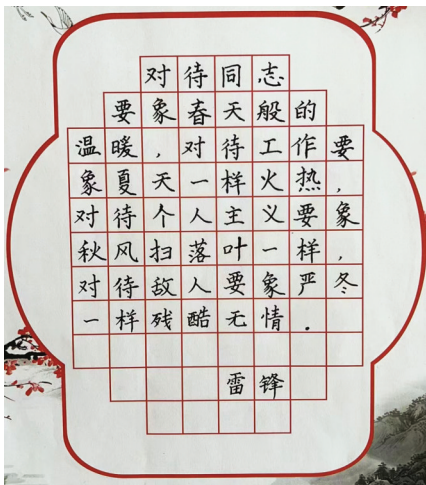 对待同志
要象春天般的
温暖，对待工作要
象夏天一样火热，
对待个人主义要象
秋风扫落叶一样，
对待敌人要象严冬
一样残酷无情.
雷锋